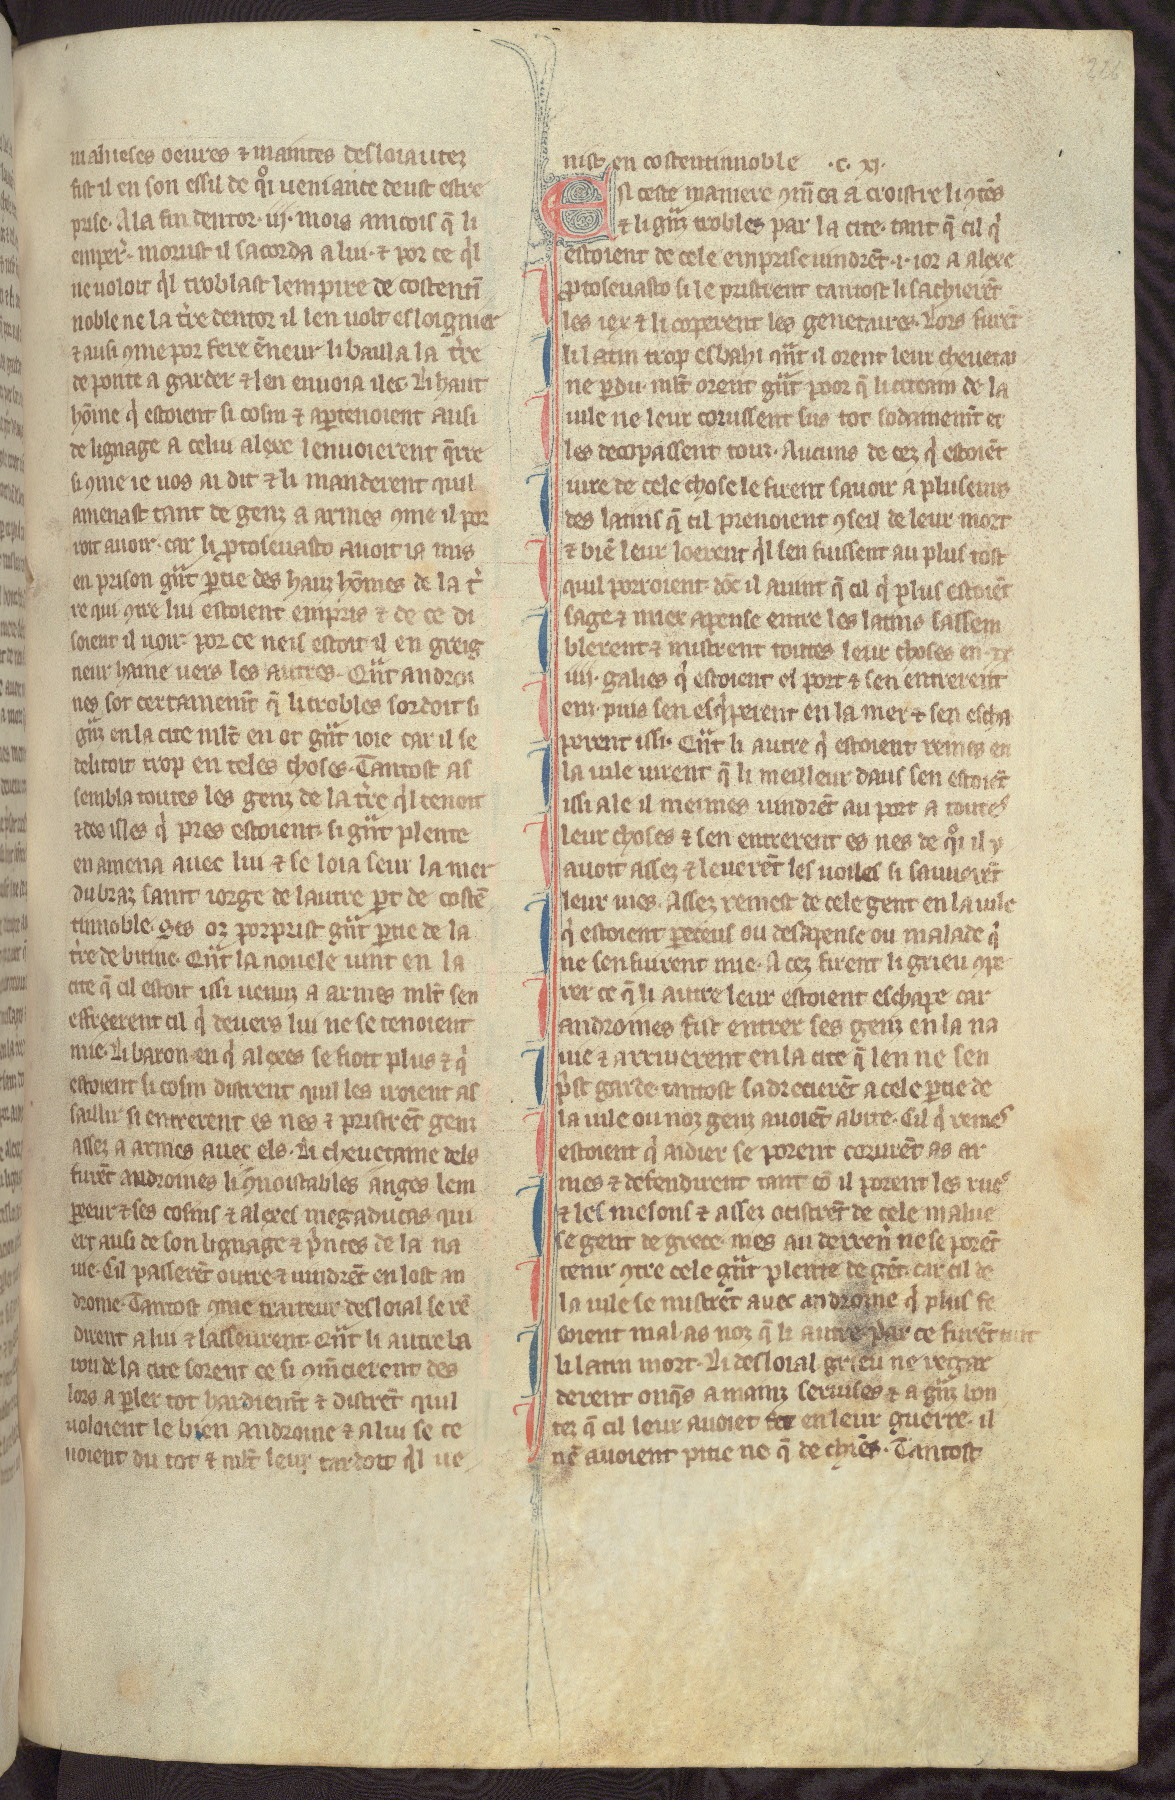 226
malueses oeures ⁊ maintes desloiautez
fist il en son essil de q̃i ueniance deust estre
prise. A la fin dentor .iij. mois aincois q̃ li
emper̃. morust il sacorda a lui. ⁊ por ce q̃l
ne uoloit q̃l troblast lempire de costentĩ
noble ne la t̃re dentor il len uolt esloignier
⁊ ausi ꝯme por fere ẽneur li bailla la t̃re
de ponte a garder ⁊ len enuoia ilec. Li haut
hõme q̃ estoient si cosin ⁊ aꝑtenoient ausi
de lignage a celui alexe lenuoierent q̃rre
si ꝯme ie uos ai dit ⁊ li manderent quil
amenast tant de genz a armes ꝯme il por
roit auoir. car li ꝓtoseuasto auoit ia mis
en prison g̃nt ꝑtie des hauz hõmes de la t̃
re qui ꝯtre lui estoient empris ⁊ de ce di
soient il uoir. por ce neis estoit il en greig
neur haine uers les autres. Q̃nt andro
nes sot certainem̃t q̃ li trobles sordoit si
g̃nz en la cite ml̃t en ot g̃nt ioie car il se
delitoit trop en teles choses. Tantost as
sembla toutes les genz de la t̃re q̃l tenoit
⁊ des isles q̃ pres estoient. si g̃nt plente
en amena auec lui ⁊ se loia seur la mer
du braz saint iorge de lautre ꝑt de costẽ
tinnoble. Ses oz porprist g̃nt ꝑtie de la
t̃re de bitine. Q̃nt la nouele uint en la
cite q̃ cil estoit issi uenuz a armes ml̃t sen
effreerent cil q̃ deuers lui ne se tenoient
mie. Li baron en q̃ alexes se fioit plus ⁊ q̃
estoient si cosin distrent quil les iroient as
saillir si entrerent es nes ⁊ pristrẽt genz
assez a armes auec els. Li cheuetaine dels
furẽt andromes li ꝯnoistables anges lem
pereur ⁊ ses cosins ⁊ alexes megaducas qui
ert ausi de son lignage ⁊ p̃nces de la na
uie. Cil passerẽt outre ⁊ uindrẽt en lost an
drome. Tantost ꝯme traiteur desloial se rẽ
dirent a lui ⁊ lasseurent. Q̃nt li autre la
uou de la cite sorent ce si ꝯm̃cierent des
lors a ꝑler tot hardiem̃t ⁊ distrẽt quil
uoloient le bien androme ⁊ a lui se te
noient du tot ⁊ ml̃t leur tardoit q̃l ue
nist en costentinnoble .c. xj.
En ceste maniere ꝯm̃ca a croistre li ꝯtẽs
⁊ li g̃nz trobles par la cite. tant q̃ cil q̃
estoient de cele emprise uindrẽt .i. ior a alexe
ꝓtoseuasto si le pristrent tantost li sachierẽt
les iex ⁊ li coperent les genetaires. Lors furẽt
li latin trop esbahi q̃nt il orent leur cheuetai
ne ꝑdu. ml̃t orent g̃nt poor q̃ li citeain de la
uile ne leur corussent sus tot sodainem̃t et
les decopassent touz. Aucuns de cez q̃ estoiẽt
uire de cele chose le firent sauoir a pluseurs
des latins q̃ cil prenoient ꝯseil de leur mort
⁊ biẽ leur loerent q̃l sen fuissent au plus tost
quil porroient. dõc il auint q̃ cil q̃ plus estoiẽt
sage ⁊ miex apense entre les latins sassem
blerent ⁊ mistrent toutes leur choses en .xl
iiij. galies q̃ estoient el port ⁊ sen entrerent
enz. puis sen esq̃perent en la mer ⁊ sen escha
perent issi. Q̃nt li autre q̃ estoient remes en
la uile uirent q̃ li meilleur daus sen estoiẽt
issi ale il meimes uindrẽt au port a toutes
leur choses ⁊ sen entrerent es nes de q̃i il y
auoit assez ⁊ leuerẽt les uoiles si sauuerẽt
leur uies. Assez remest de cele gent en la uile
q̃ estoient ꝑeceus ou desapense ou malade q̃
ne sen fuirent mie. A cez firent li grieu ꝯpe
rer ce q̃ li autre leur estoient eschape car
andromes fist entrer ses genz en la na
uie ⁊ arriuerent en la cite q̃ len ne sen
p̃st garde. tantost sadrecierẽt a cele ꝑtie de
la uile ou noz genz auoiẽt abite. Cil q̃ remes
estoient q̃ aidier se porent corurẽt as ar
mes ⁊ defendirent tant cõ il porent les rues
⁊ les mesons ⁊ assez ocistrẽt de cele malue
se gent de grece. mes au derreñ ne se porẽt
tenir ꝯtre cele g̃nt plente de gẽt. car cil de
la uile se mistrẽt auec androme q̃ plus fe
soient mal as noz q̃ li autre par ce furẽt tuit
li latin mort. Li desloial grieu ne regar
derent onq̃s a mainz seruises ⁊ a g̃nz bon
tez q̃ cil leur auoiẽt fet en leur guerre. il
nẽ auoient pitie ne q̃ de chiẽs. Tantost